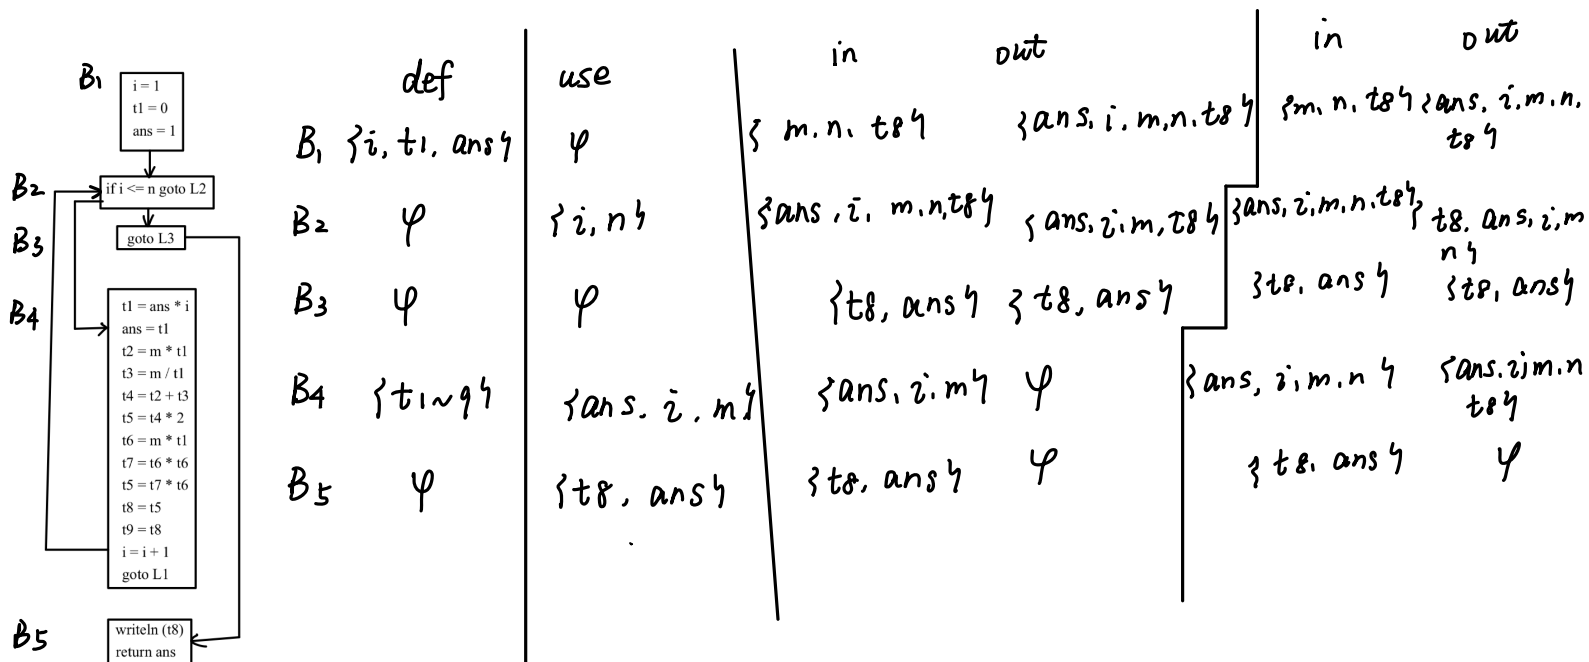 B1
i = 1
t1 = 0
ans = 1
B2
if i <= n goto L2
B3
goto L3
B4
t1 = ans * i
ans = t1
t2 = m * t1
t3 = m / t1
t4 = t2 + t3
t5 = t4 * 2
t6 = m * t1
t7 = t6 * t6
t5 = t7 * t6
t8 = t5
t9 = t8
i = i + 1
goto L1
B5
writeln (t8)
return ans
def use in out in out
B1 {i, t1, ans} φ { m, n, t8} {ans, i, m, n, t8} {m, n, t8} {ans, i, m, n,
t8}
B2 φ {i, n} {ans, i, m, n, t8} {ans, i, m, t8} {ans, i, m, n, t8} { t8, ans, i, m
n}
B3 φ φ {t8, ans} { t8, ans} {t8, ans} {t8, ans}
B4 {t1~9} {ans, i, m} {ans, i, m} φ {ans, i, m, n } {ans, i, m, n
t8}
B5 φ {t8, ans} {t8, ans} φ { t8, ans} φ